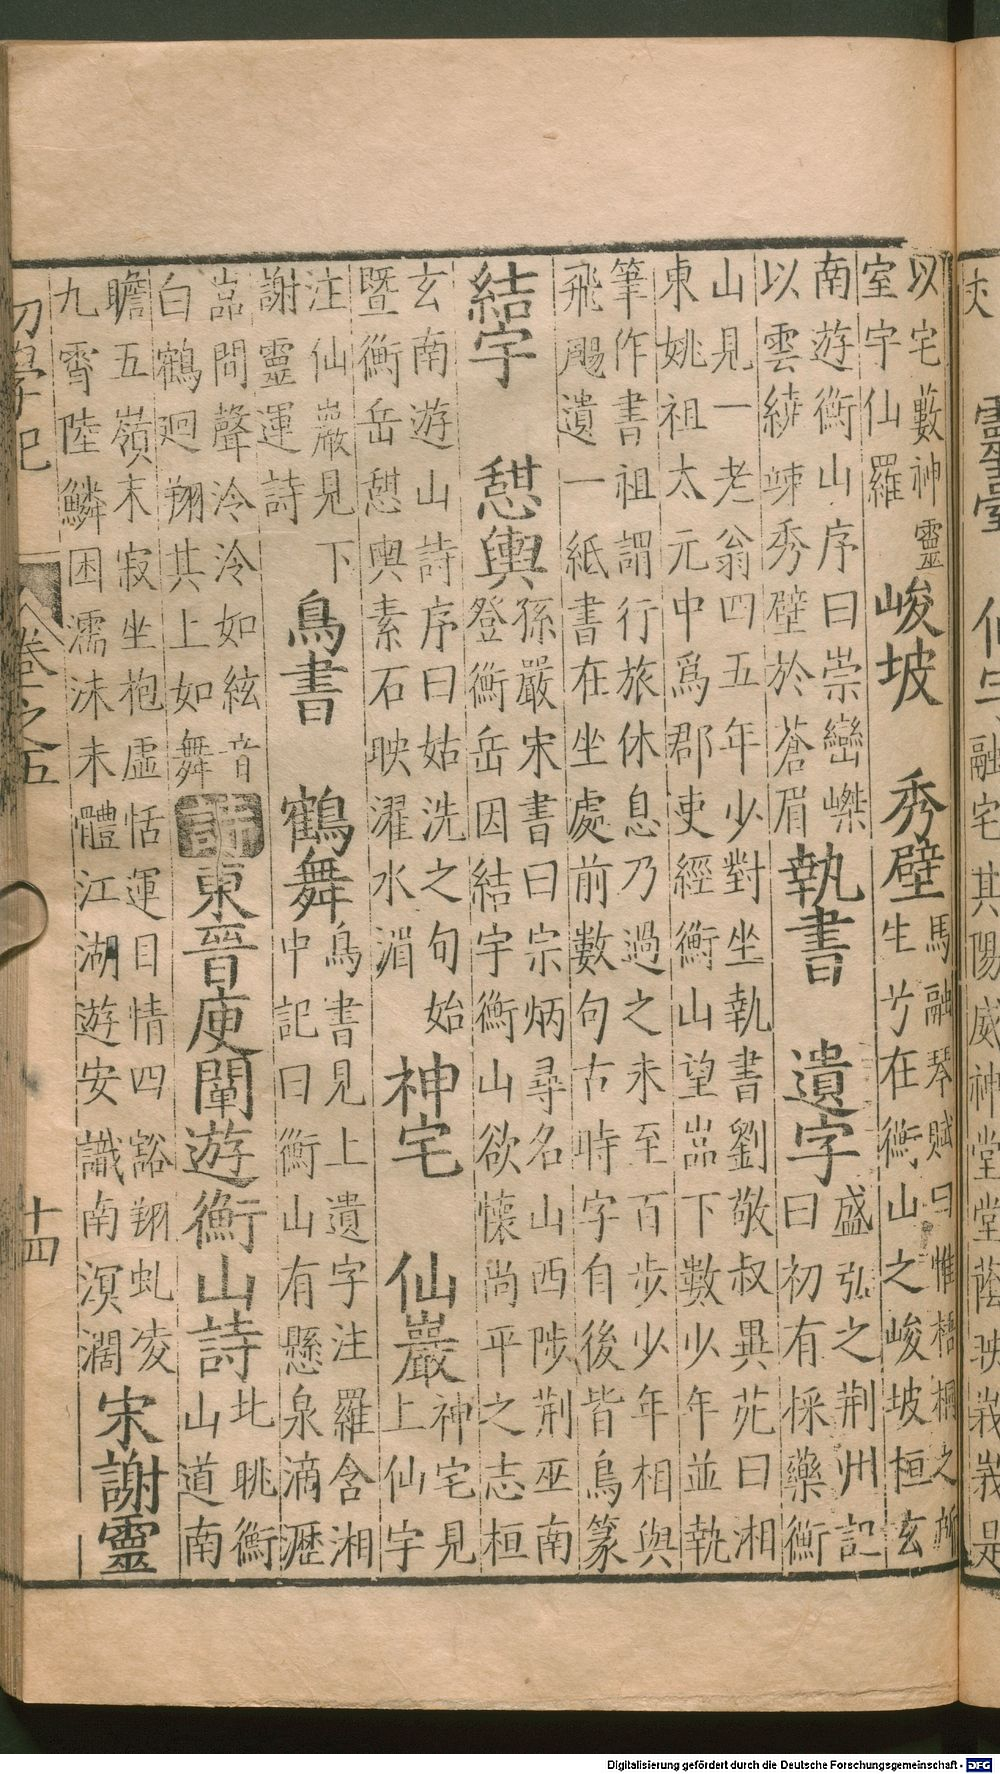 以宅藪神靈
室宇仙羅
峻坡 秀壁
馬融琴賦曰惟梧桐之所
生兮在衡山之峻坡桓玄
南遊衡山序曰崇巒嵥
以雲繞竦秀壁於蒼眉
執書 遺字
盛弘之荆州記
曰初有採藥衡
山見一老翁四五年少對坐執書劉敬叔異苑曰湘
東姚祖太元中爲郡吏經衡山望岊下數少年並執
筆作書祖謂行旅休息乃過之未至百步少年相與
飛颺遺一紙書在坐處前數句古時字自後皆鳥篆
結宇 憇輿
孫嚴宋書曰宗炳尋名山西陟荆巫南
登衡岳因結宇衡山欲懷尚平之志桓
玄南遊山詩序曰姑洗之旬始
暨衡岳憇輿素石映濯水湄
神宅 仙巖
神宅見
上仙宇
注仙巖見下
謝靈運詩
鳥書 鶴舞
鳥書見上遺字注羅含湘
中記曰衡山有懸泉滴瀝
岊間聲泠泠如絃音
白鶴迴翔其上如舞
詩
東晉庾闡遊衡山詩
北眺衡
山道南
瞻五嶺末寂坐抱虛恬運目情四豁翔虬凌
九霄陸鱗困濡沫未體江湖遊安識南溟濶
宋謝靈
初學記
卷之五
十四
靈臺 仙宇
融宅其陽威神堂堂蔭映峩峩是